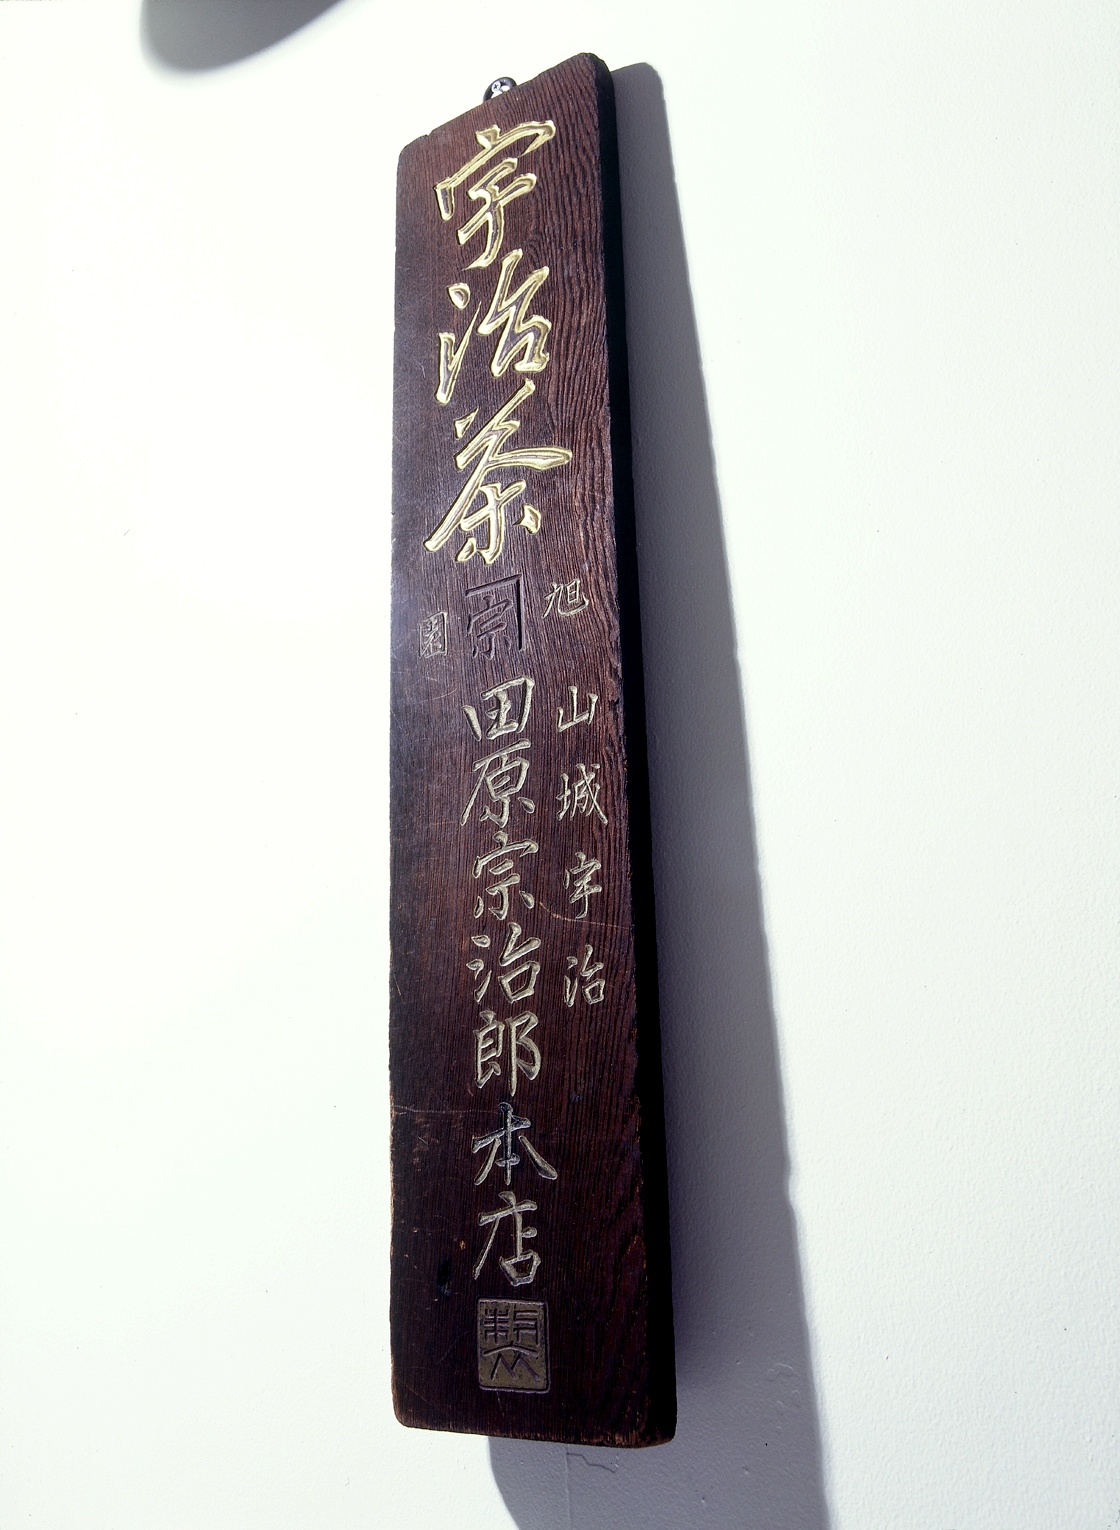 宇治茶
旭 宗 園
山城宇治
田原宗治郎本店
製